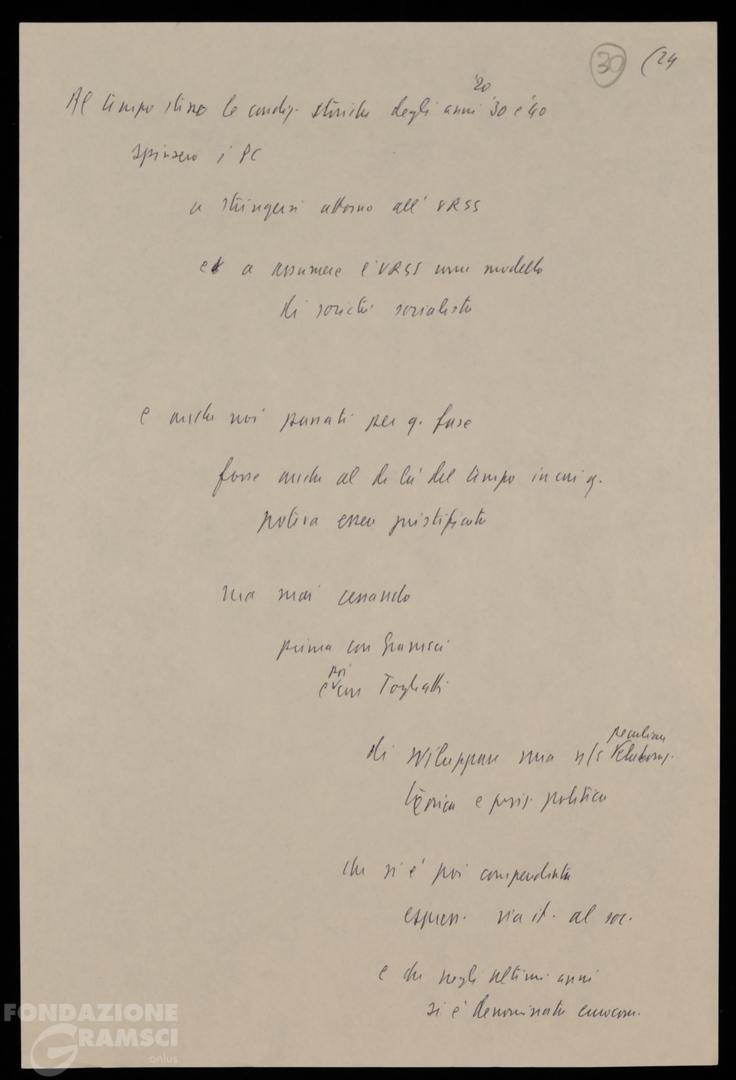 30 (24
'20
Al tempo stesso le condiz. storiche degli anni '30 e '40
spinsero i PC
a stringersi attorno all'URSS
e a assumere l'URSS come modello
di società socialista
e anche noi passati per q. fase
forse anche al di là del tempo in cui q.
poteva essere giustificata
ma mai cessando
prima con Gramsci
e poi con Togliatti
di sviluppare una n/s peculiare elaboraz.
teorica e posiz. politica
che si è poi compendiata
espress. via it. al soc.
e che negli ultimi anni
si è denominata eurocom.
FONDAZIONE
GRAMSCI
onlus